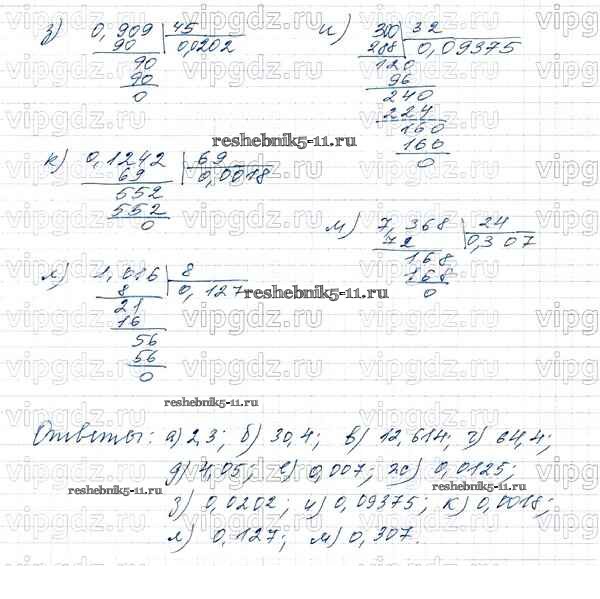 з) 0,909 | 45
90 0,0202
90
90
0
и) 300 | 32
288 0,09375
120
96
240
224
160
160
0
reshebnik5-11.ru
к) 0,1242 | 69
69 0,0018
552
552
0
м) 7,368 | 24
72 0,307
168
168
0
л) 1,016 | 8
8 0,127
21
16
56
56
0
reshebnik5-11.ru
reshebnik5-11.ru
Ответы: а) 2,3; б) 30,4; в) 12,614; г) 64,4;
д) 4,05; е) 0,007; ж) 0,0125;
з) 0,0202; и) 0,09375; к) 0,0018;
л) 0,127; м) 0,307.
reshebnik5-11.ru
reshebnik5-11.ru
vipgdz.ru